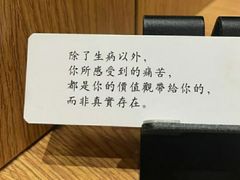 除了生病以外，
你所感受到的痛苦，
都是你的價值觀帶給你的，
而非真實存在。